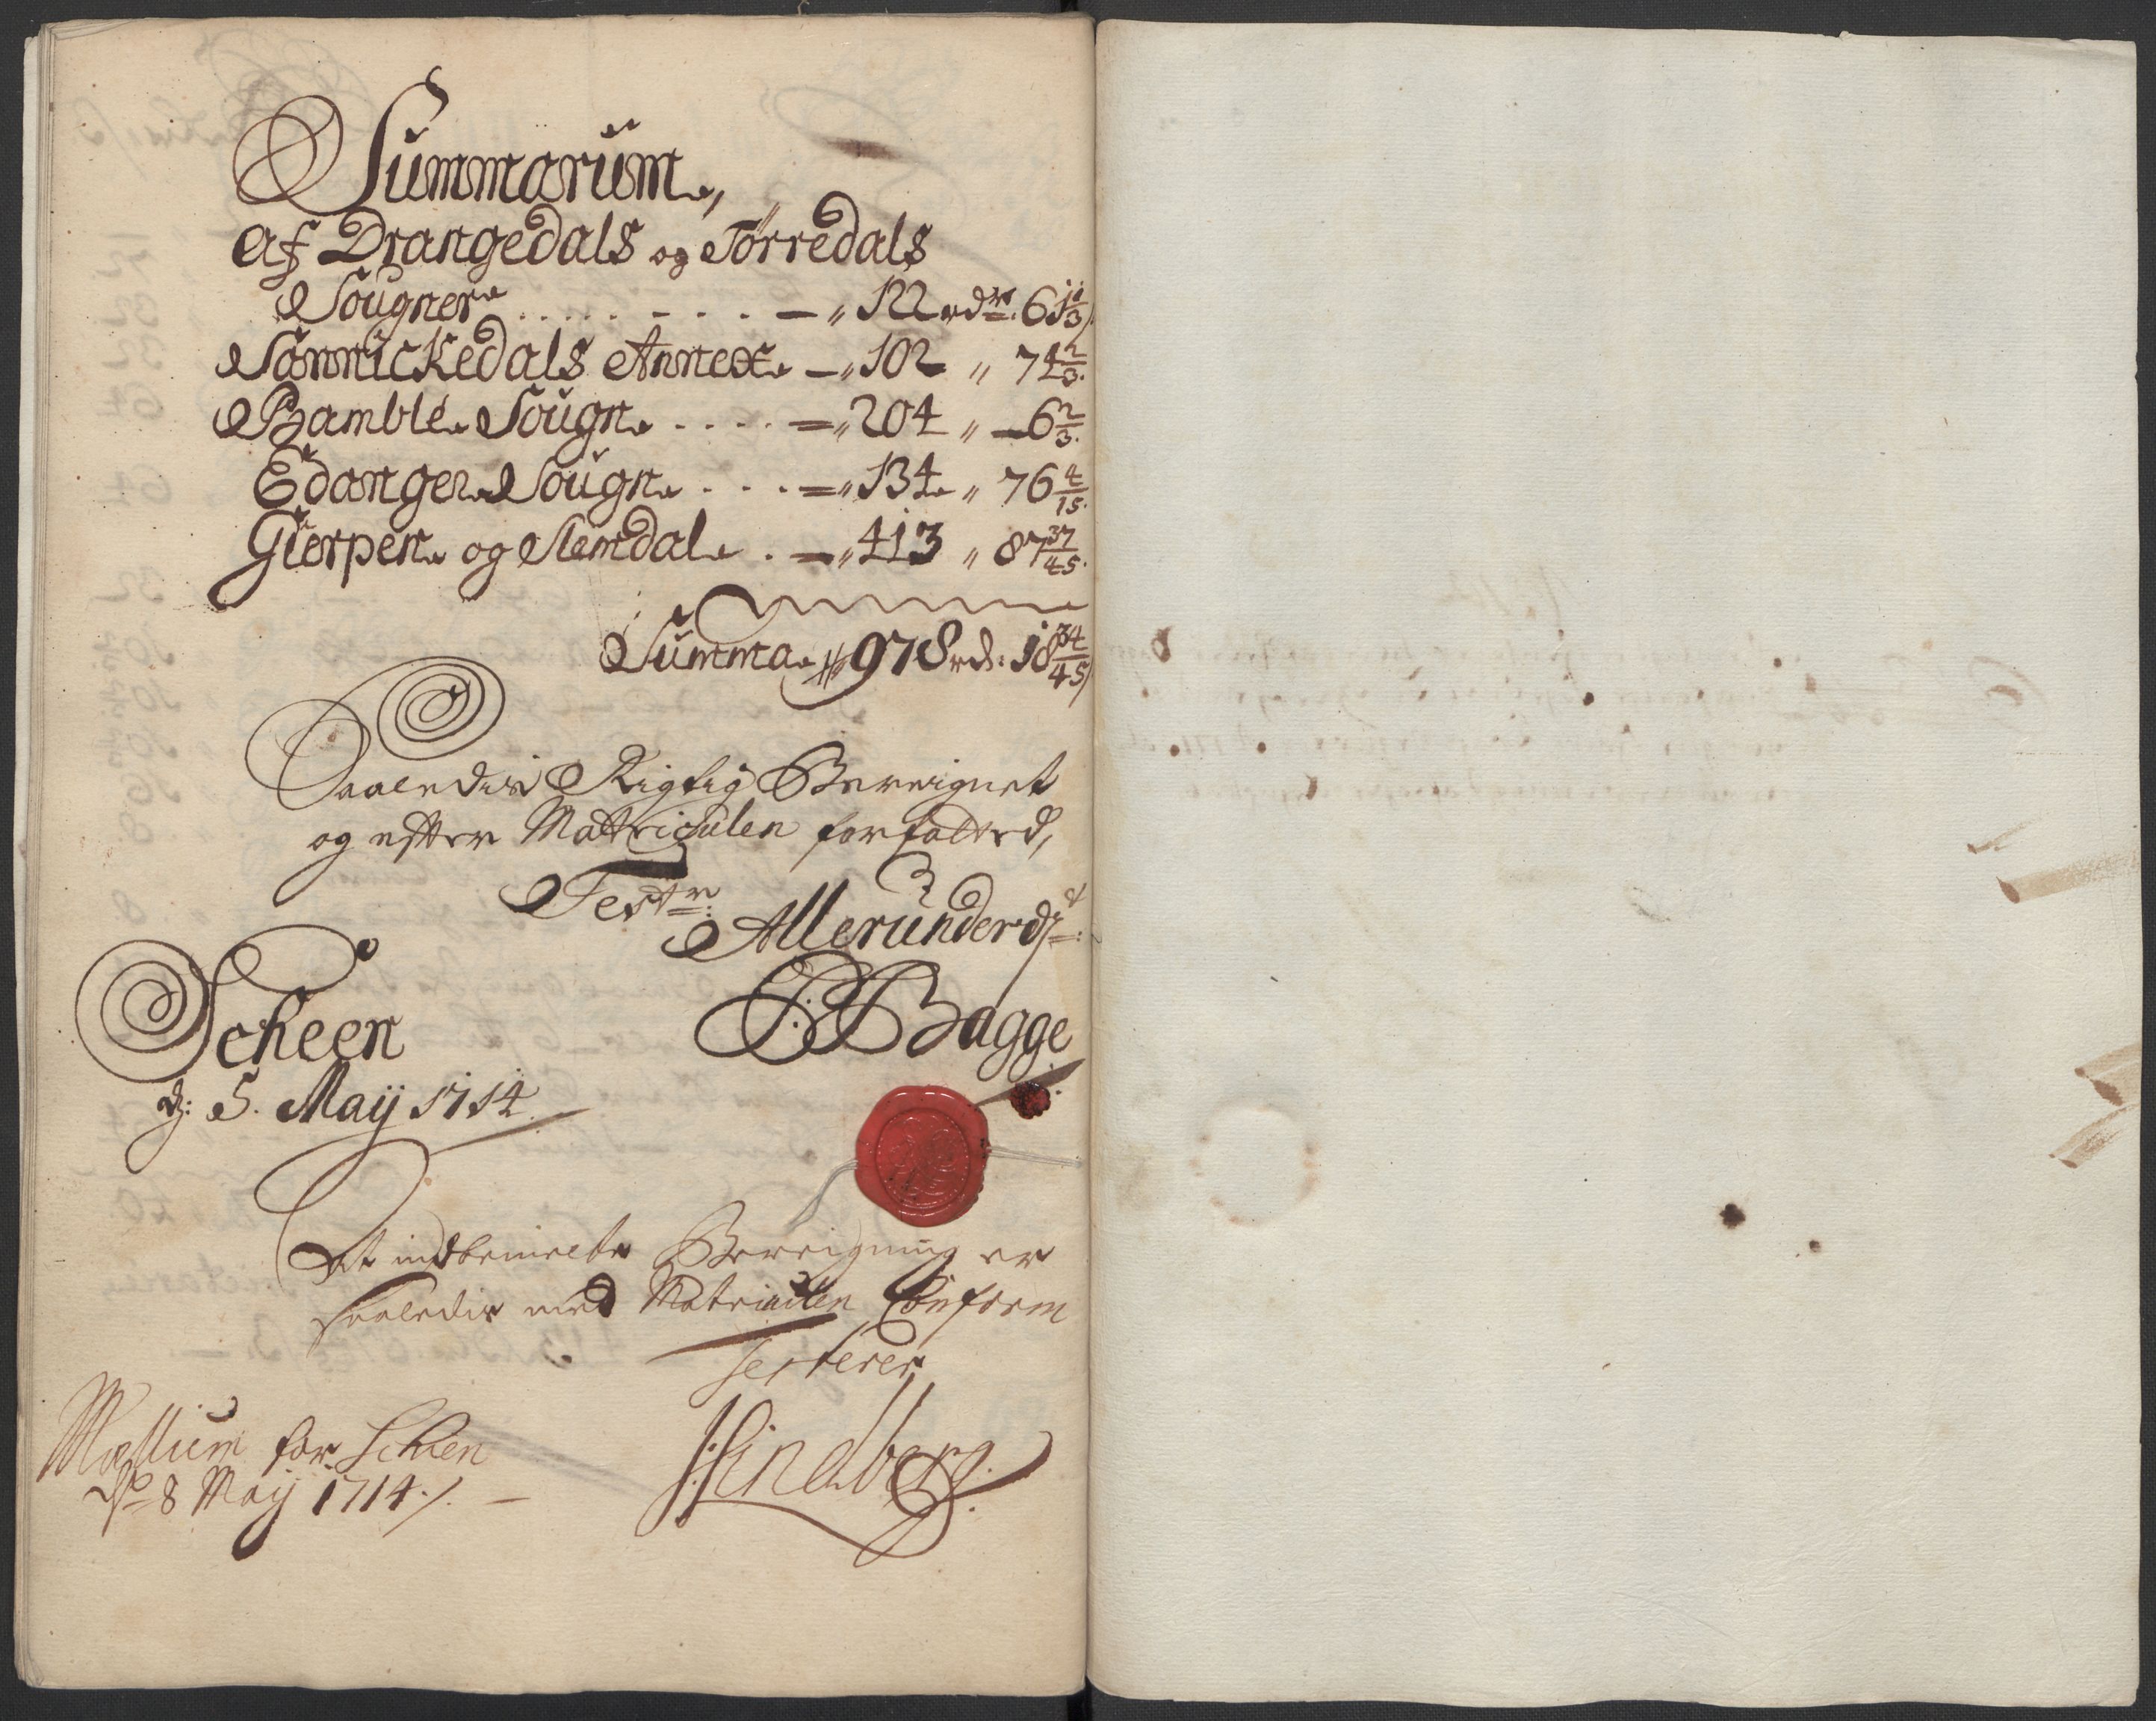 Summarum,
Af Drangedals og Tørredals
Sougner ..... - . . . - „ 122 rdr. 61 1/3 s
Sannickedals Annex - „ 102 „ 74 2/3.
Bamble Sougn .... = „ 204 „ - 6 2/3.
Edanger Sougn . . . = „ 134 „ 76 4/15.
Gierpen og Slemdal . = „ 413 „ 87 37/45.
Summa 978 rd: 18 34/45 s
Saaledis Rigtig Bereignet
og efter Matriculen forfatted,
Test:
Allerunderd:
P: Bagge
Scheen
d: 5. Maij 1714
At indbemelte Bereigning er
saaledis med Matriculen Conform
testerer
Mællum for Schien
de 8 Maij 1714 ./. -
H: Lindberg.